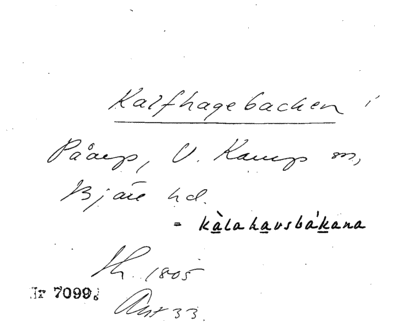 Kalfhagebacken i
Påarp, V. Karup sn,
Bjäre hd.
= kàlahavsbákana
Sk. 1805
Nr 7099.
Ant 33.